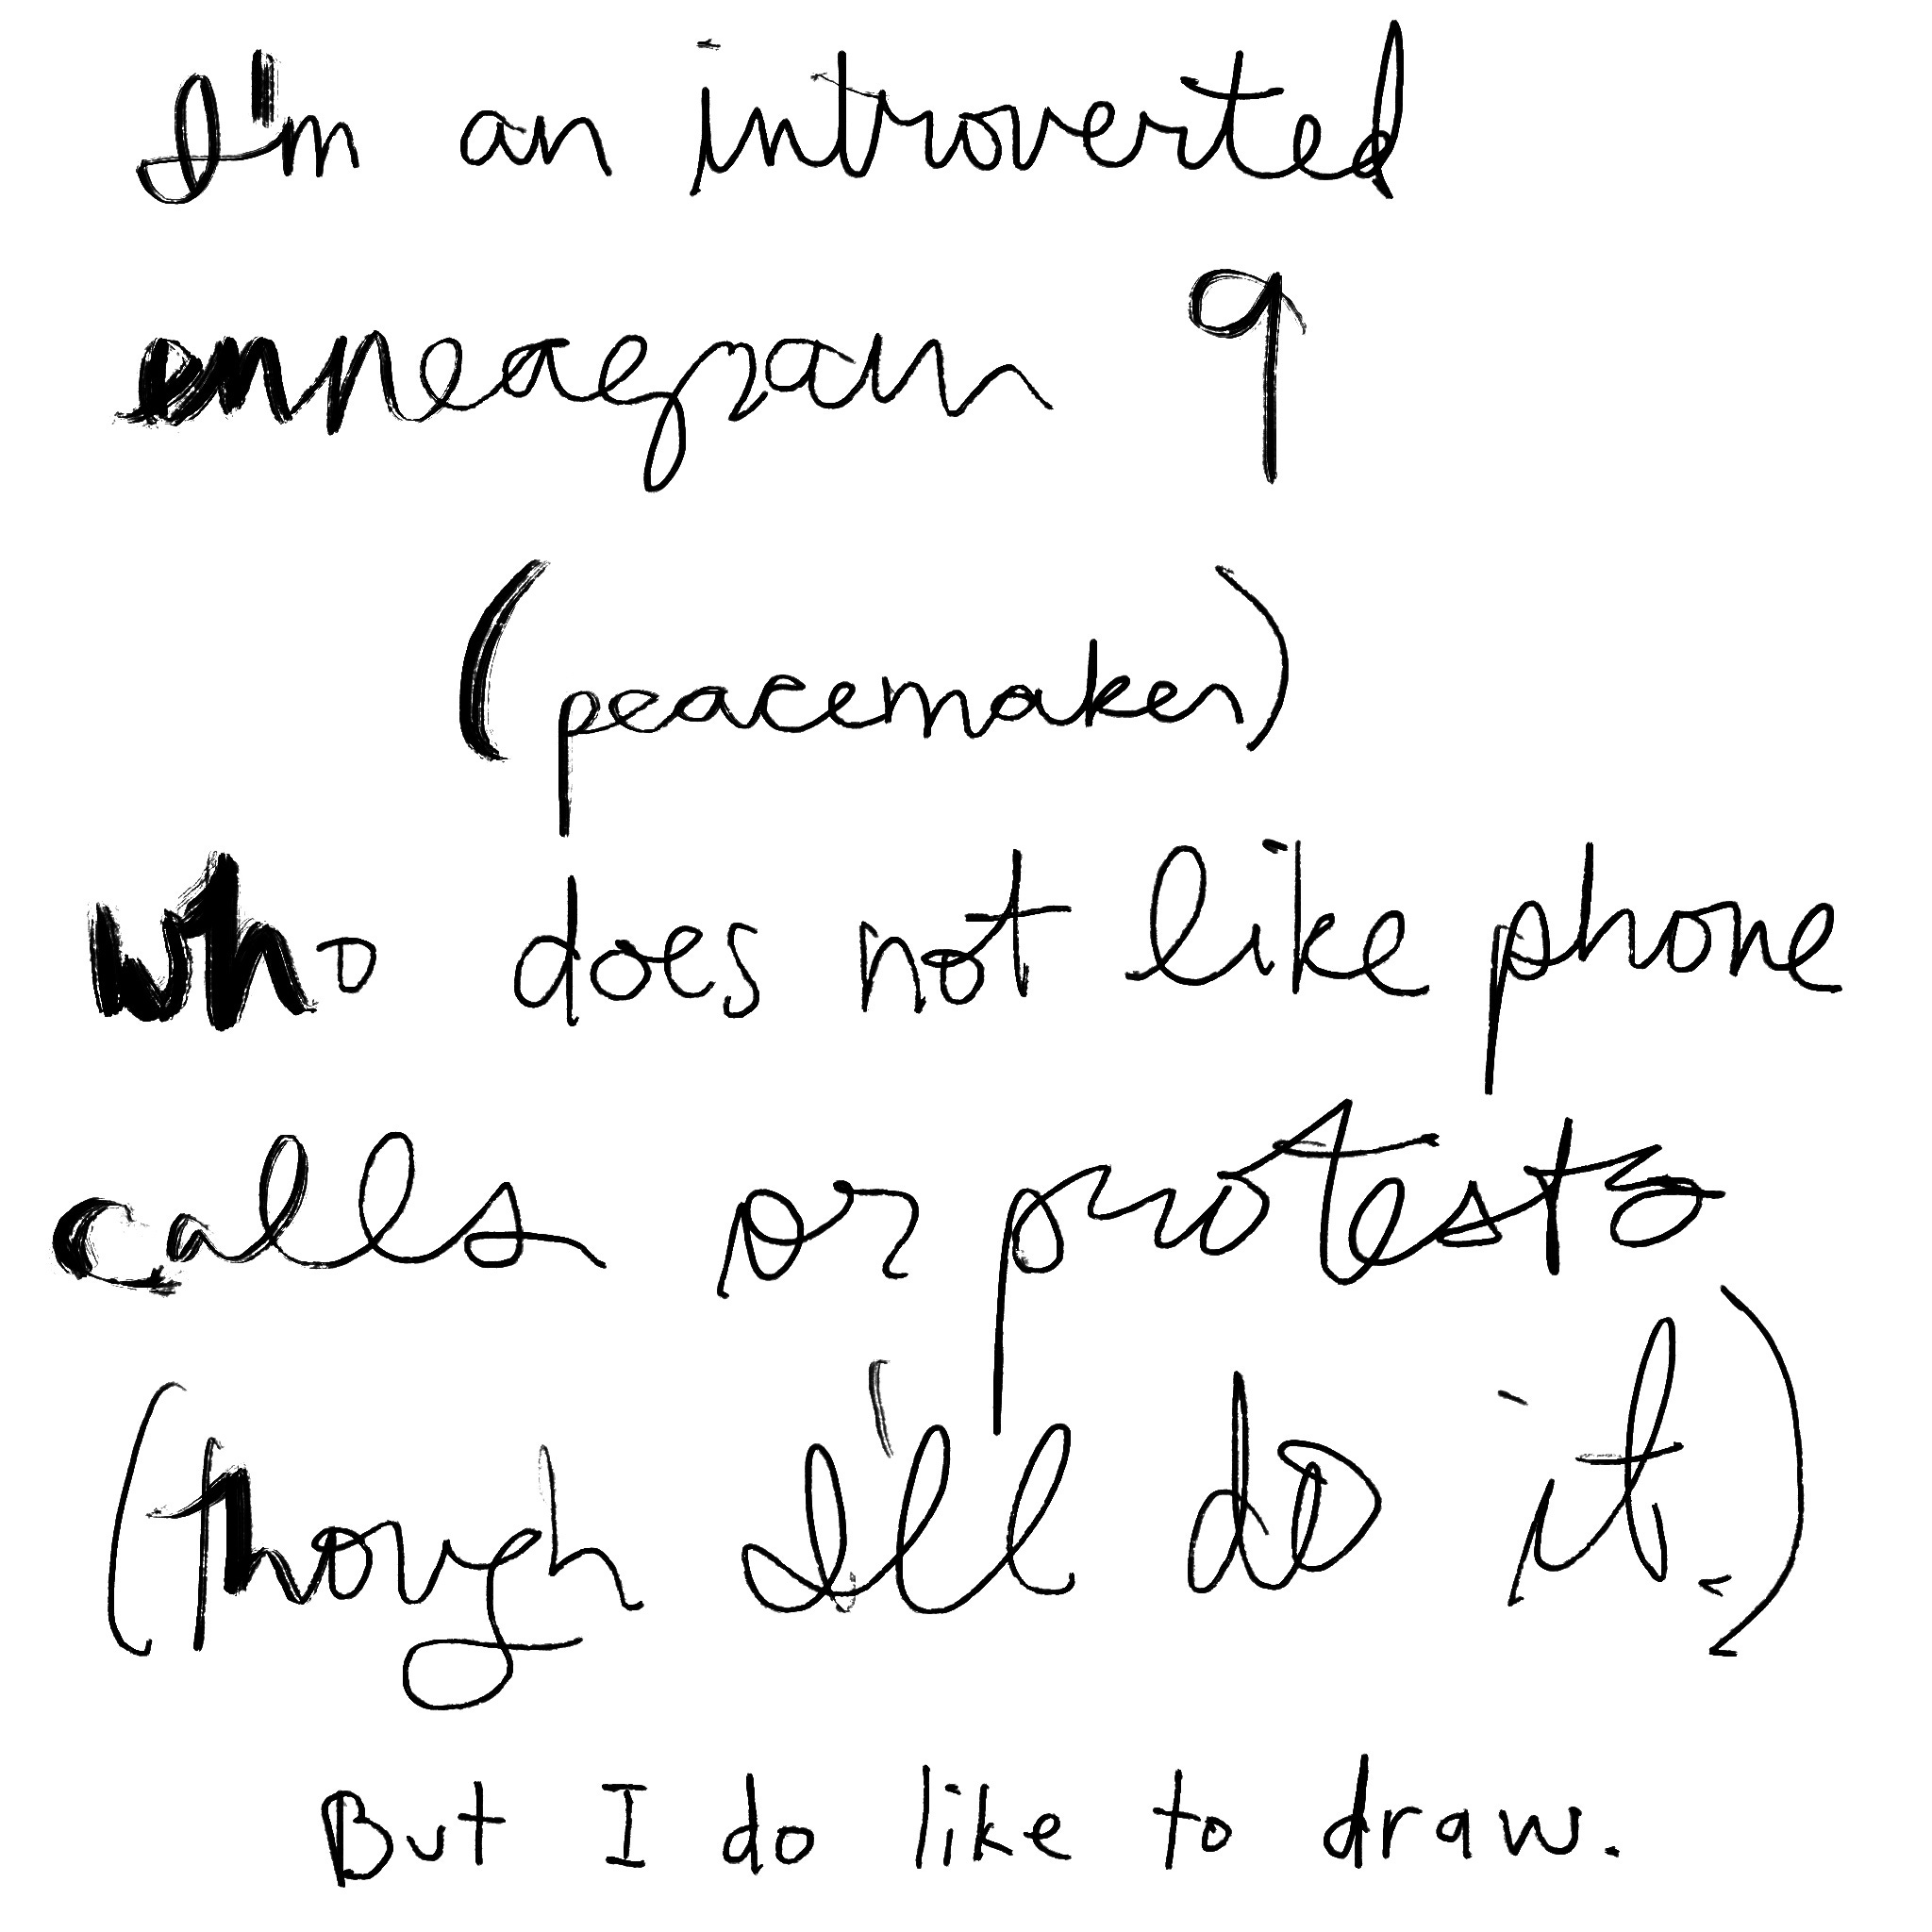 I'm an introverted
enneagram 9
(peacemaker)
who does not like phone
calls or protests
(though I'll do it.)
But I do like to draw.